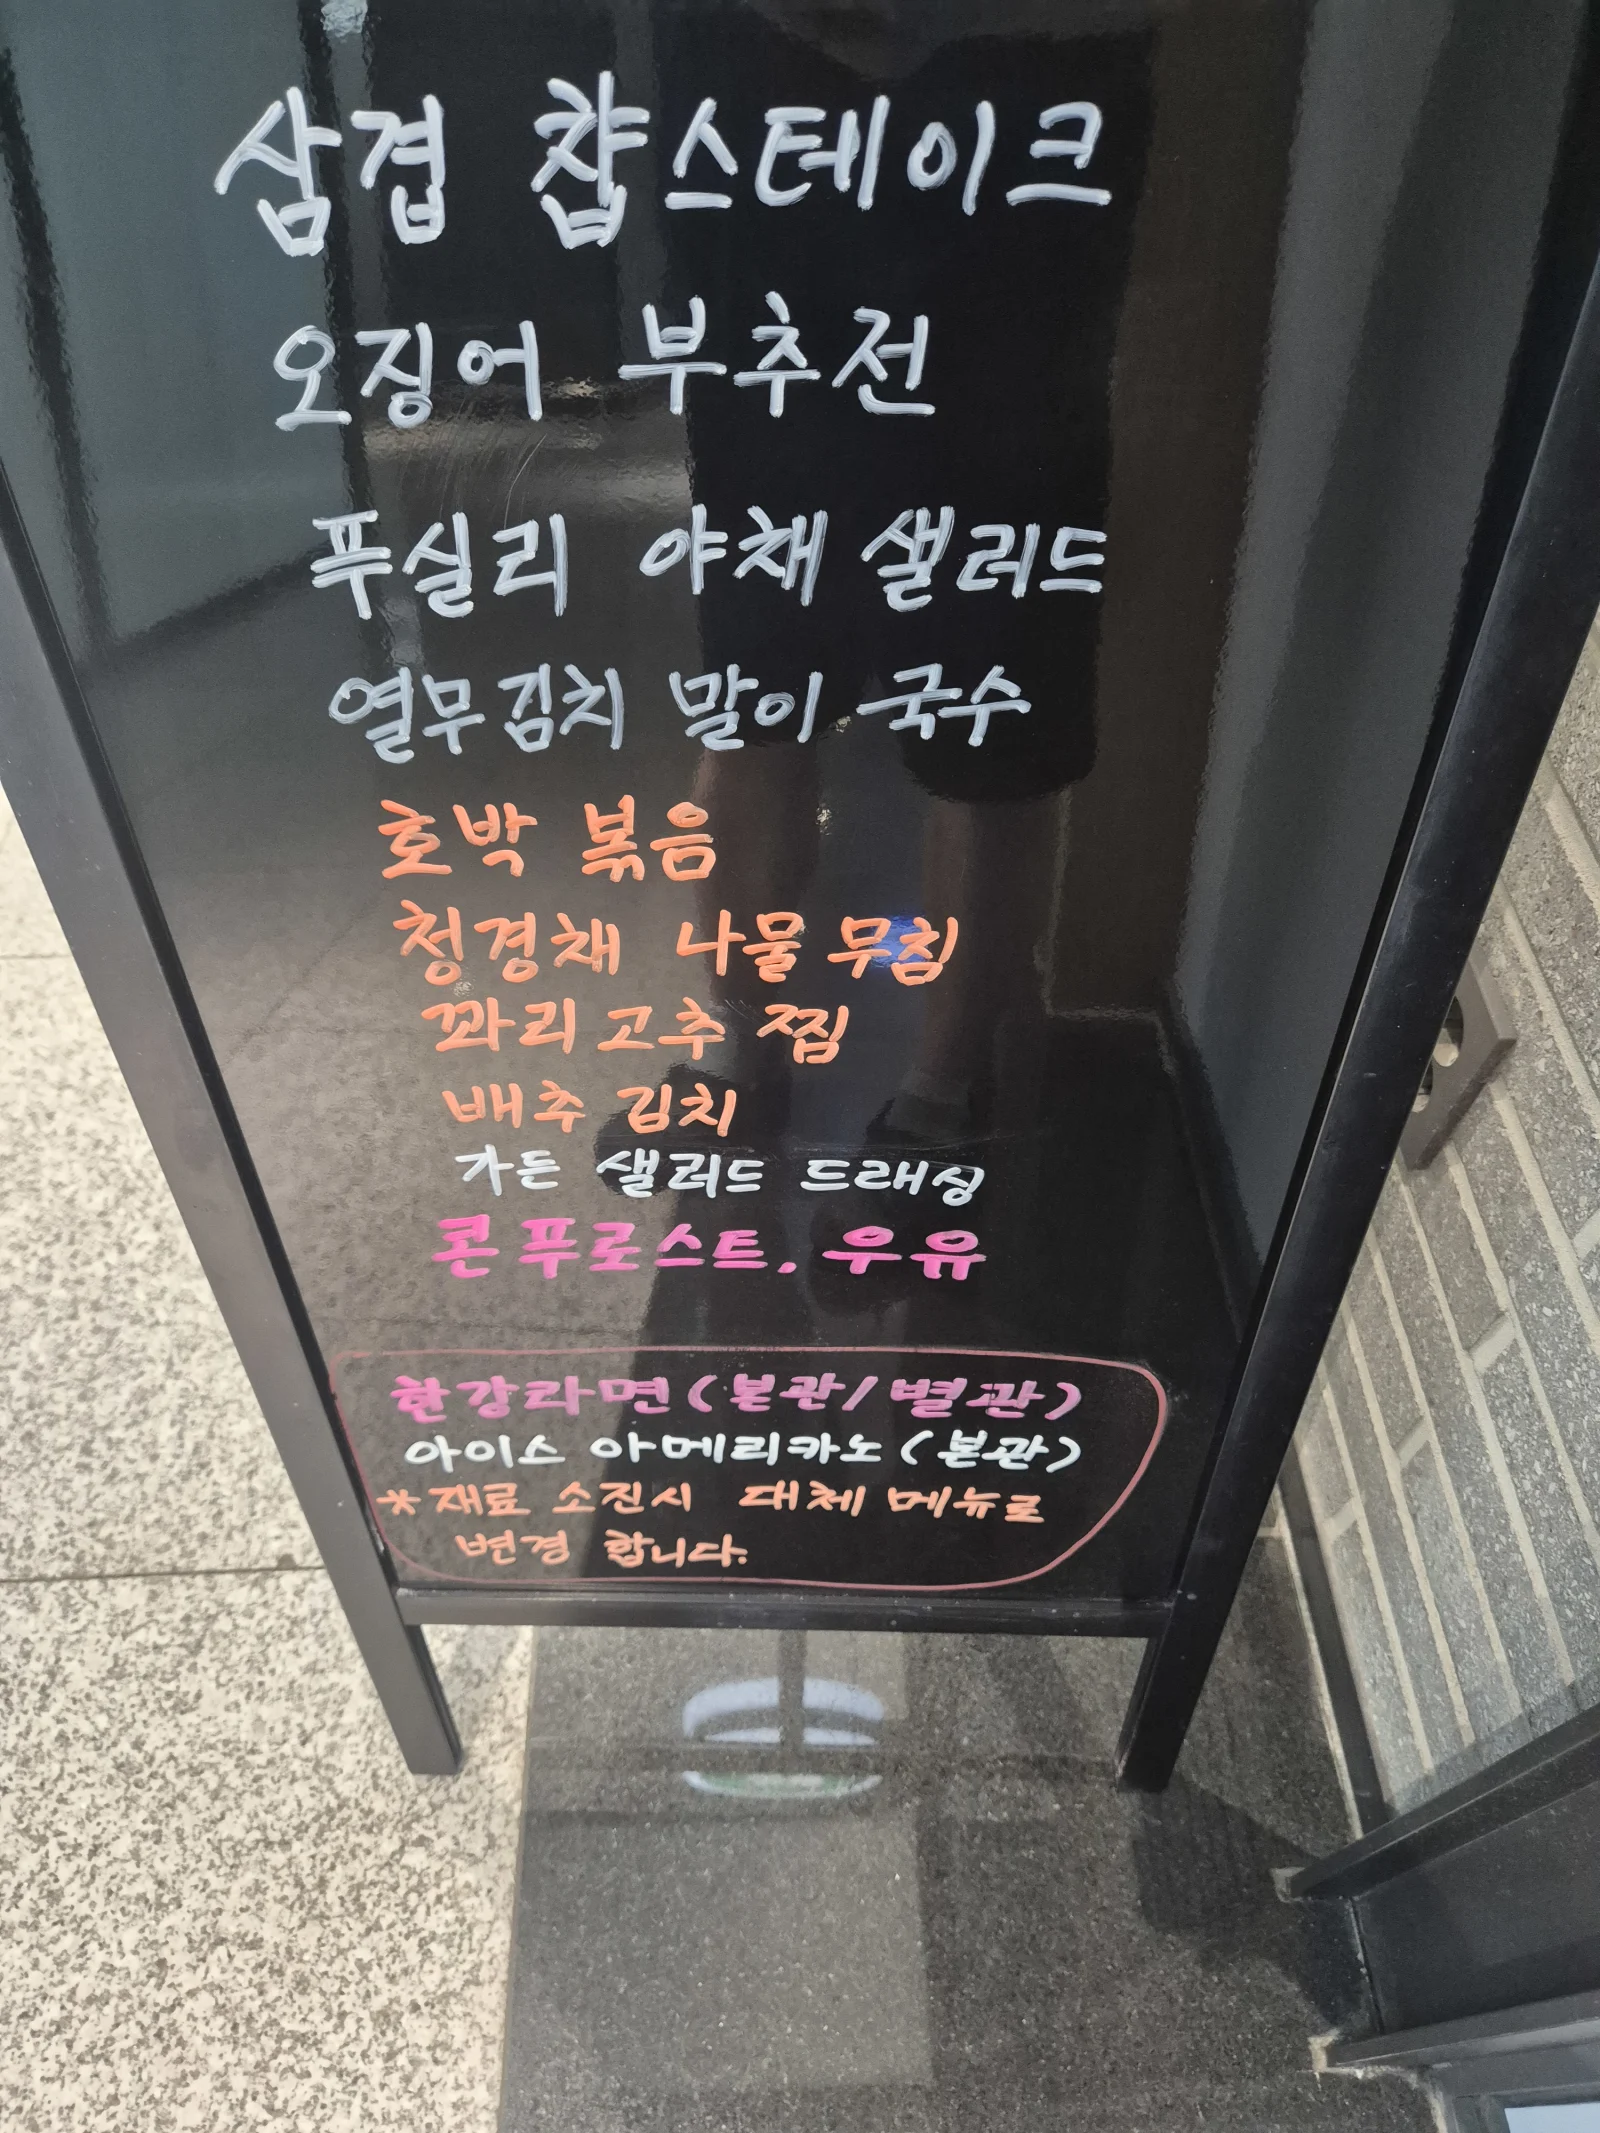 삼겹 찹스테이크
오징어 부추전
푸실리 야채 샐러드
열무김치 말이 국수
호박 볶음
청경채 나물 무침
꽈리고추 찜
배추 김치
가든 샐러드 드래싱
콘푸로스트. 우유
한강라면(본관/별관)
아이스 아메리카노(본관)
*재료 소진시 대체 메뉴로
변경 합니다.